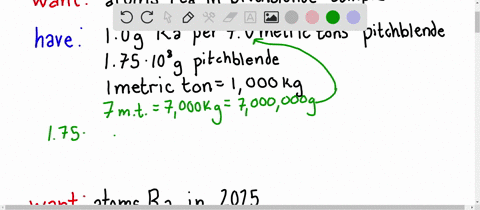 want: atoms Ra in pitchblende
have: 1.0g Ra per 7.0 metric tons pitchblende
1.75·10⁸g pitchblende
1 metric ton = 1,000 kg
7 m.t. = 7,000 kg = 7,000,000g
1.75·
want: atoms Ra in 2025